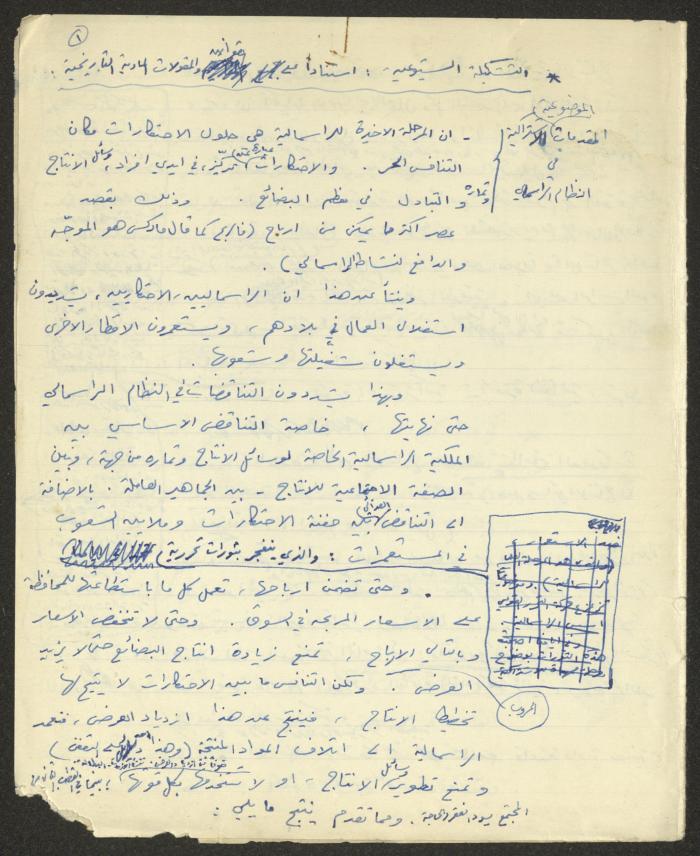 ١
* التشكيلة الشيوعية : استناداً على قوانين والمقولات المادية التاريخية :
الموضوعية
المقدمات
في
النظام الرأسمالي
- ان المرحلة الاخيرة للراسمالية هي حلول الاحتكارات مكان
التنافس الحر . والاحتكارات عبارة عن تمركز، في ايدي افراد، وسائل الانتاج
وثماره والتبادل في معظم البضائع . وذلك بقصد
عصر اكثر ما يمكن من ارباح (فالربح كما قال ماركس هو الموجّه
والدافع لنشاط الراسمالي) .
وينشأ عن هذا ان الراسماليين الاحتكاريين، يشددون
استغلال العمال في بلادهم، ويستعمرون الاقطار الاخرى
ويستغلون شغيلتها وشعوبها .
وبهذا يشددون التناقضات في النظام الراسمالي
حتى نهايتها ، خاصة التناقض الاساسي بين
الملكية الراسمالية الخاصة لوسائل الانتاج وثماره من جهة، وبين
الصفة الاجتماعية للانتاج - بين الجماهير العاملة . بالاضافة
الى التناقض العدائي بين حفنة الاحتكارات وملايين الشعوب
في المستعمرات : والذي ينفجر بثورات تحررية
. وحتى تضمن ارباحها، تعمل كل ما باستطاعتها للمحافظة
على الاسعار المربحة في السوق . وحتى لا تنخفض الاسعار
وبالتالي الارباح ، تمنع زيادة انتاج البضائع حتى لا يزيد
العرض . ولكن التنافس ما بين الاحتكارات لا يتيح لها
الحروب
تخطيط الانتاج ، فينتج عن هذا ازدياد العرض، فتعمد
الراسمالية الى اتلاف المواد المنتجة (وهذا
وتمنع تطوير وسائل الانتاج ، او لا تستخدمها بكل قوتها ، بينما في
المجتمع يسود الفقر والحاجة . ومما تقدم ينتج ما يلي :